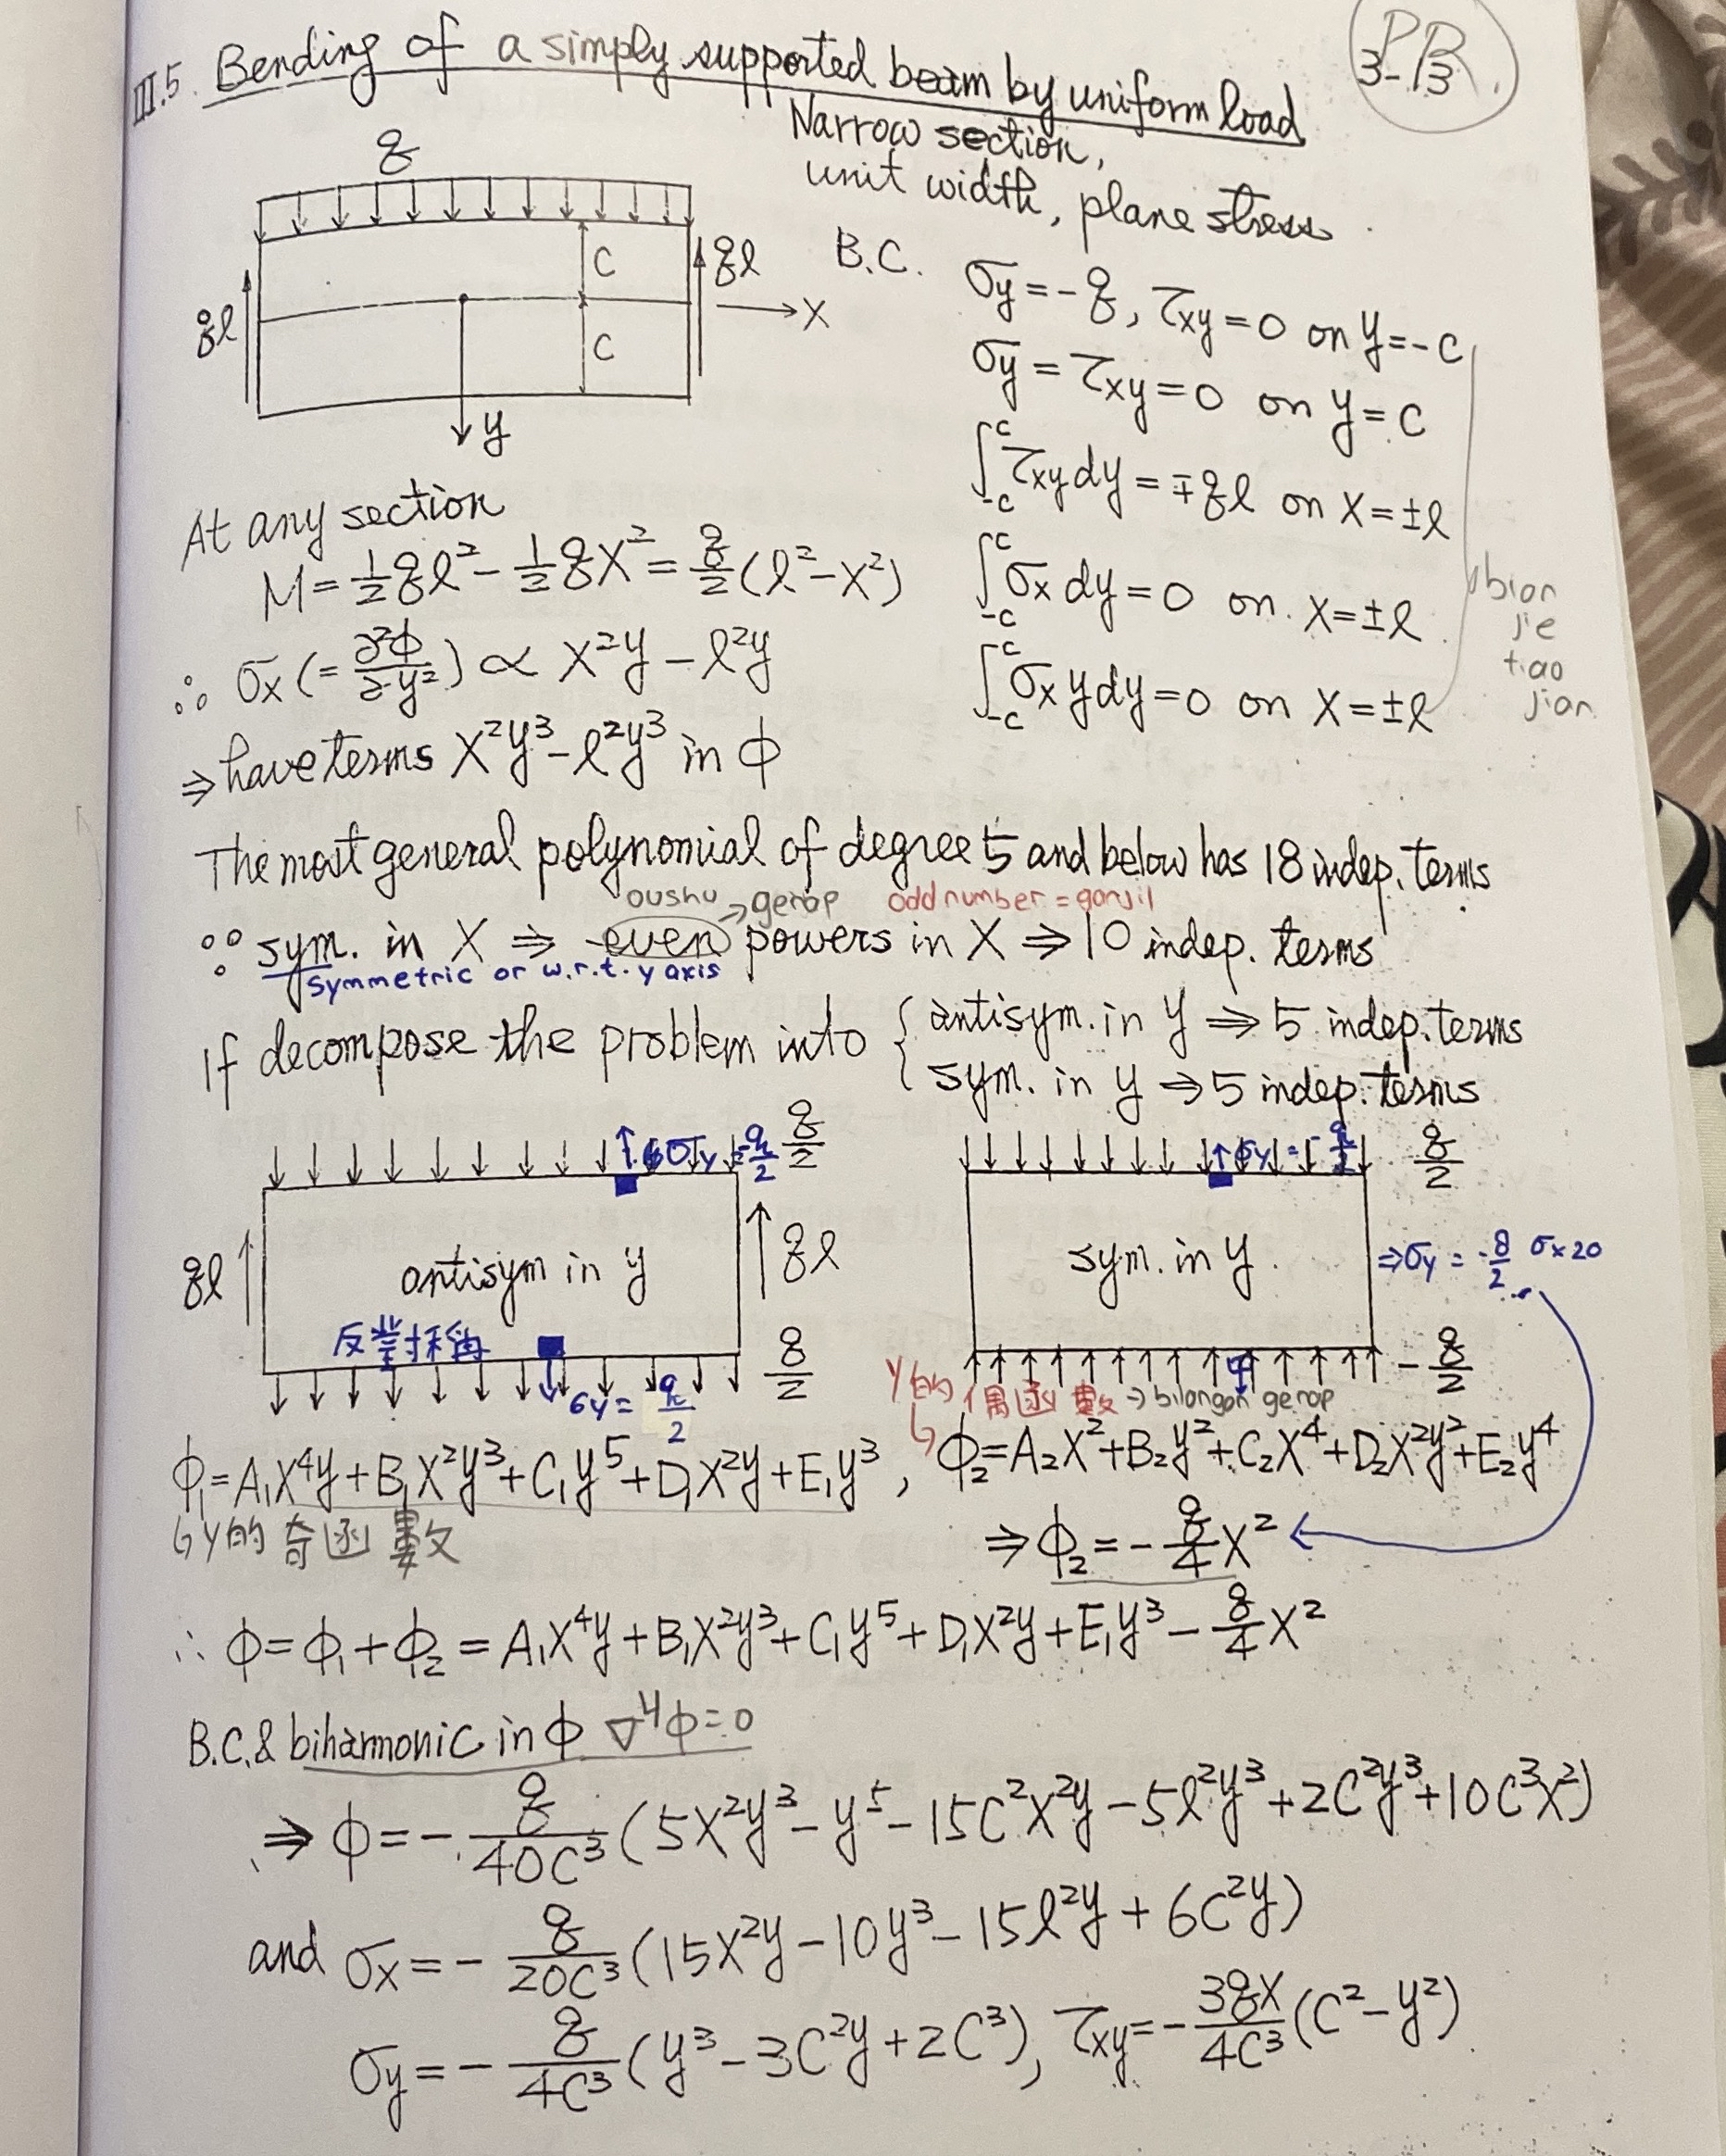 III.5. Bending of a simply supported beam by uniform load
P R
3-3
Narrow section,
unit width, plane stress
q
c
c
ql
ql
x
y
B.C.
σy = -q, τxy = 0 on y = -c
σy = τxy = 0 on y = c
∫_{-c}^{c} τxy dy = ∓ql on x = ±l
∫_{-c}^{c} σx dy = 0 on x = ±l
∫_{-c}^{c} σx y dy = 0 on x = ±l
bian
jie
tiao
jian
At any section
M = 1/2 ql² - 1/2 qx² = q/2 (l² - x²)
∴ σx (= ∂²φ/∂y²) ∝ x²y - l²y
⇒ have terms x²y³ - l²y³ in φ
The most general polynomial of degree 5 and below has 18 indep. terms
oushu → genap odd number = ganjil
∵ sym. in x ⇒ even powers in x ⇒ 10 indep. terms
symmetric or w.r.t. y axis
If decompose the problem into { antisym. in y ⇒ 5 indep. terms
sym. in y ⇒ 5 indep. terms
σy = -q/2
q/2
ql
antisym in y
ql
反對稱
σy = q/2
q/2
σy = -q/2
q/2
sym. in y.
⇒ σy = -q/2 σx=0
-q/2
y的偶函數 → bilangan genap
φ₁ = A₁x⁴y + B₁x²y³ + C₁y⁵ + D₁x²y + E₁y³ , φ₂ = A₂x² + B₂y² + C₂x⁴ + D₂x²y² + E₂y⁴
↳ y的奇函數
⇒ φ₂ = -q/4 x²
∴ φ = φ₁ + φ₂ = A₁x⁴y + B₁x²y³ + C₁y⁵ + D₁x²y + E₁y³ - q/4 x²
B.C. & biharmonic in φ ∇⁴φ = 0
⇒ φ = - q/40c³ (5x²y³ - y⁵ - 15c²x²y - 5l²y³ + 2c²y³ + 10c³x²)
and σx = - q/20c³ (15x²y - 10y³ - 15l²y + 6c²y)
σy = - q/4c³ (y³ - 3c²y + 2c³), τxy = - 3qx/4c³ (c² - y²)